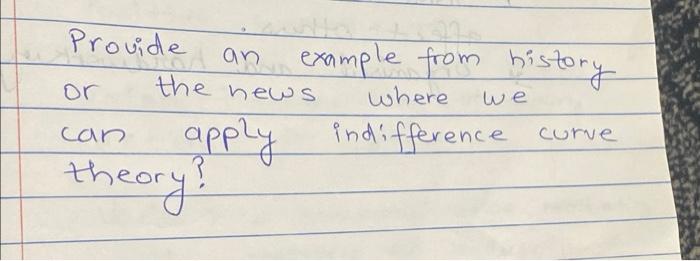 Provide an example from history
or the news where we
can apply indifference curve
theory?